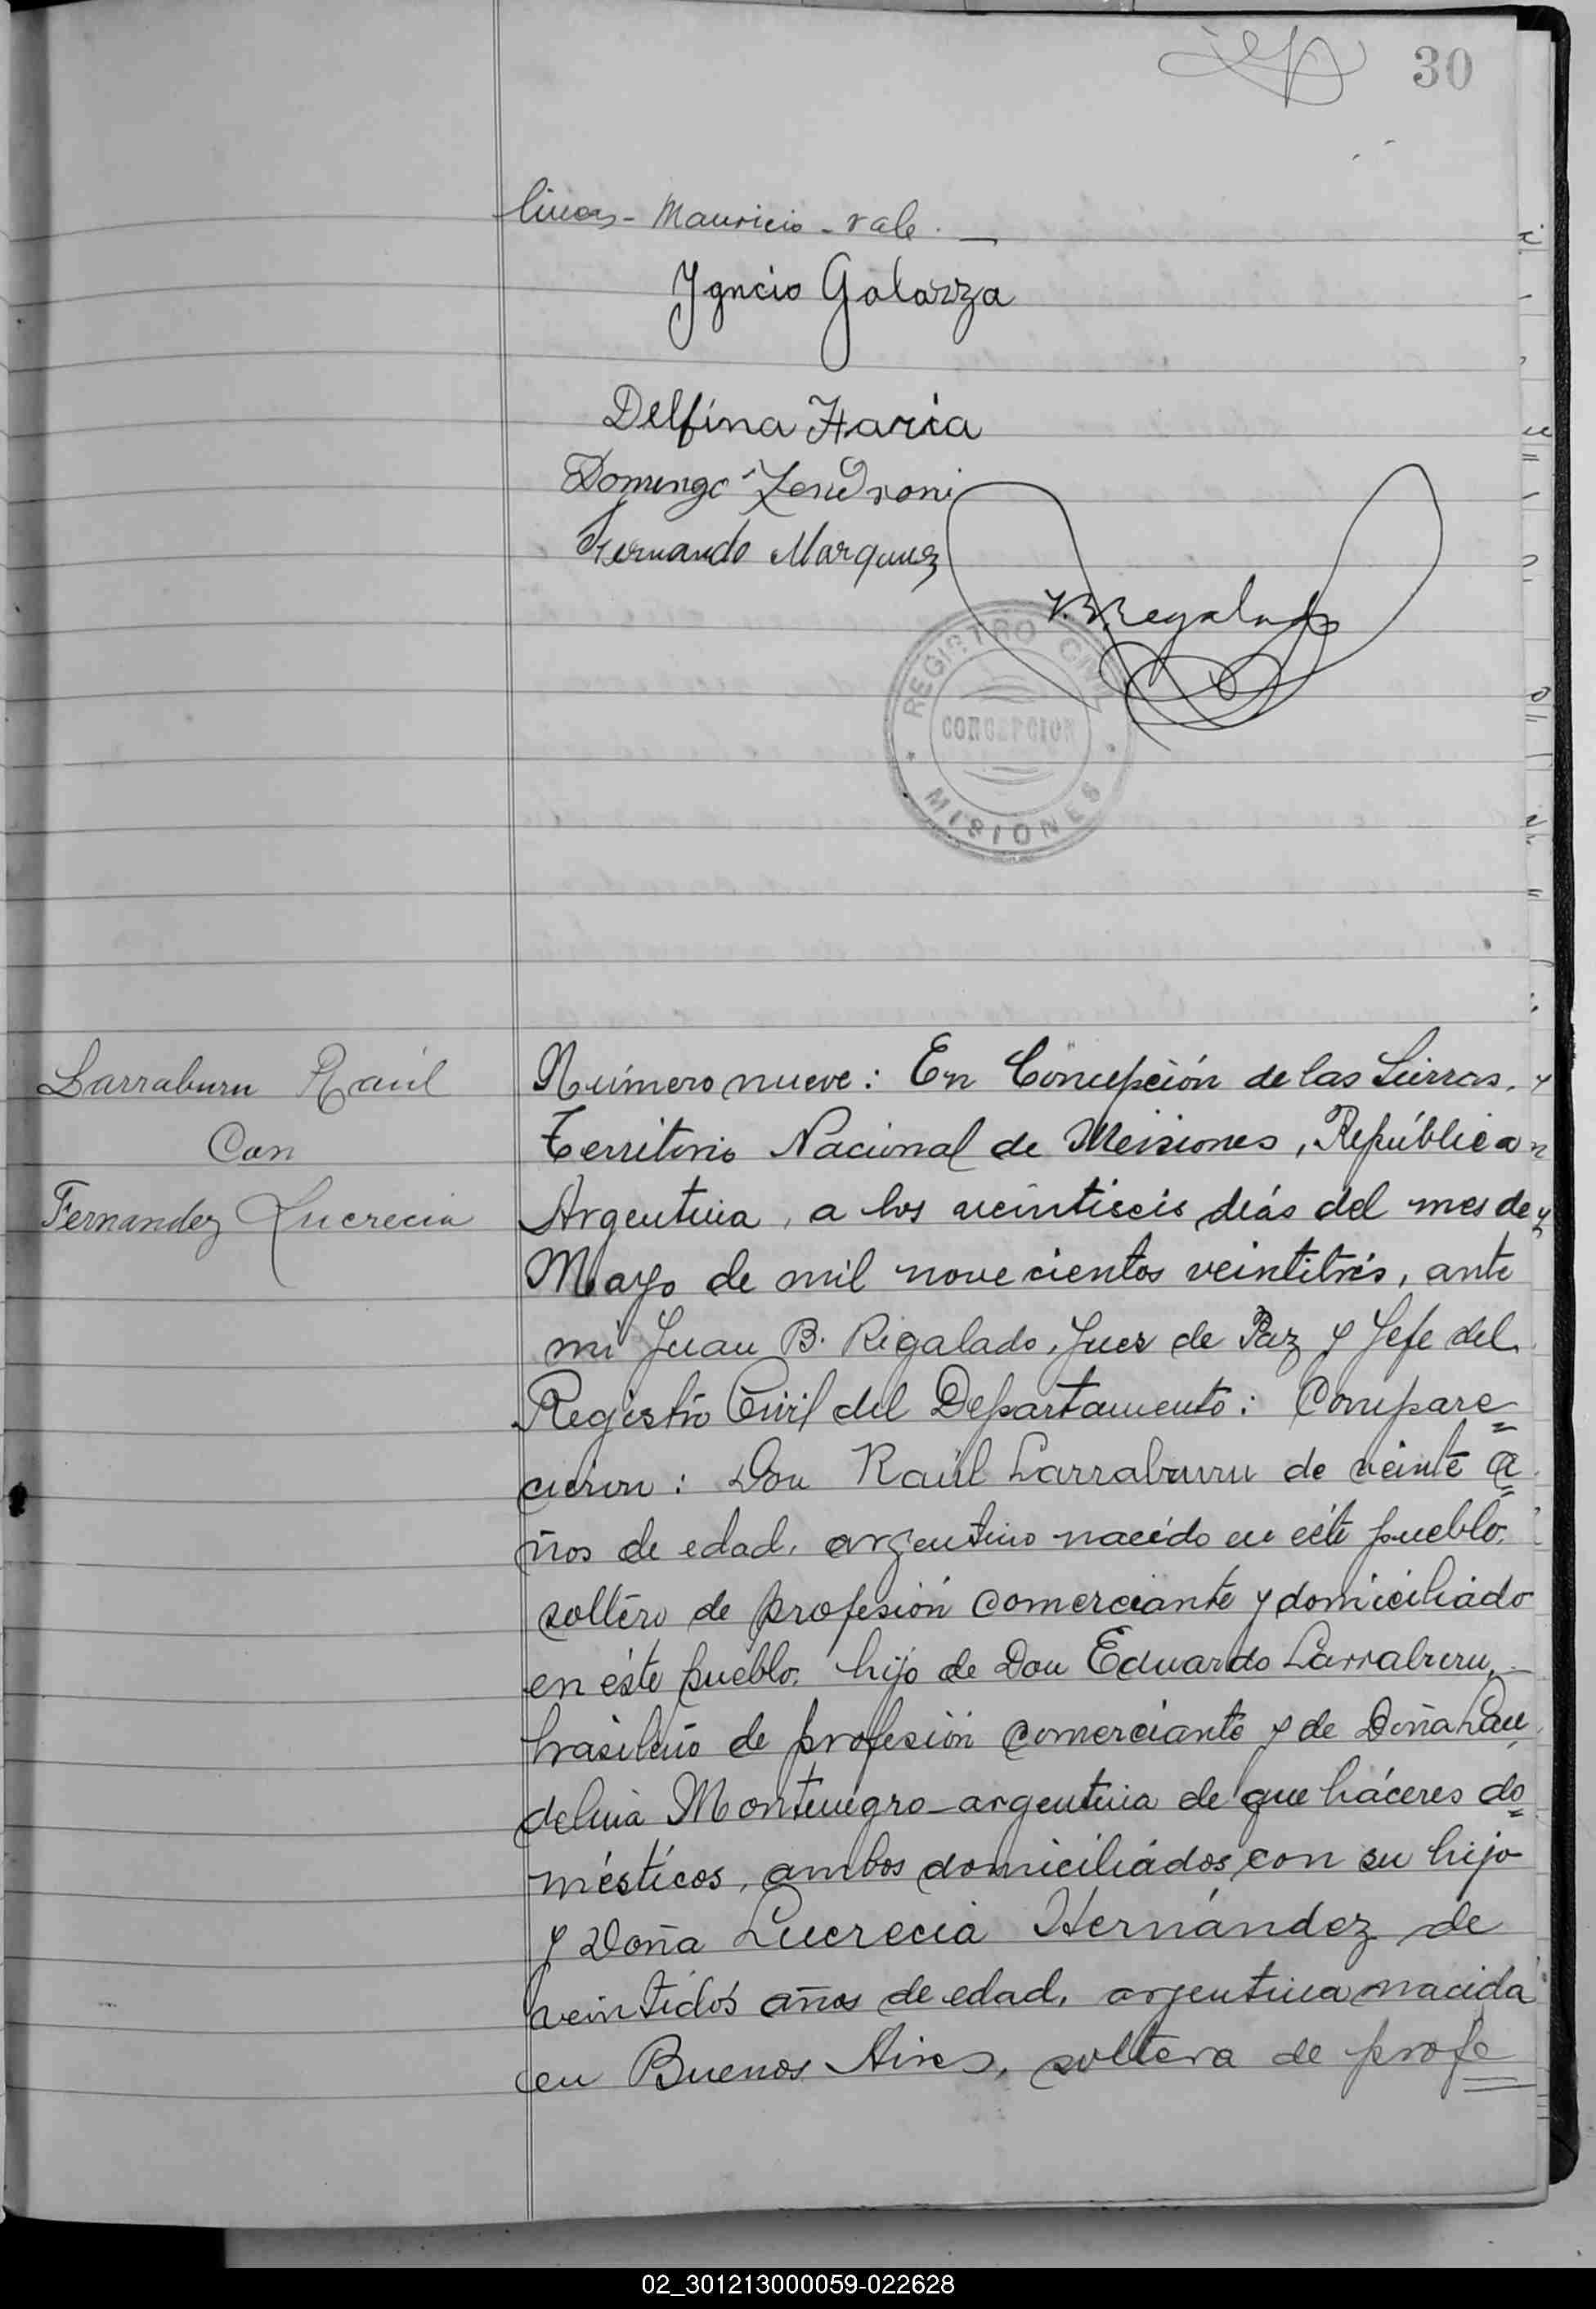 30
lineas - Mauricio - vale. —
Ygncio Galarza
Delfina Faria
Domingo Zendroni
Fernando Marquez
J.B. Regalado
REGISTRO CIVIL
CONCEPCION
* MISIONES *
Larraburu Raúl
Con
Fernandez Lucrecia
Número nueve: En Concepción de las Sierras,
Territorio Nacional de Misiones, República
Argentina, a los veintiseis días del mes de
Mayo de mil novecientos veintitrés, ante
mi Juan B. Rigalado, Juez de Paz y Jefe del
Registro Civil del Departamento: Compare=
cieron: Don Raúl Larraburu de veinte a=
ños de edad, argentino nacido en éste pueblo,
soltero de profesión comerciante y domiciliado
en éste pueblo, hijo de Don Eduardo Larraburu,
brasileño de profesión comerciante y de Doña Lau
delina Montenegro - argentina de que háceres do=
mésticos, ambos domiciliados con su hijo
y Doña Lucrecia Hernández de
veintidós años de edad, argentina nacida
en Buenos Aires, soltera de profe=
02_301213000059-022628